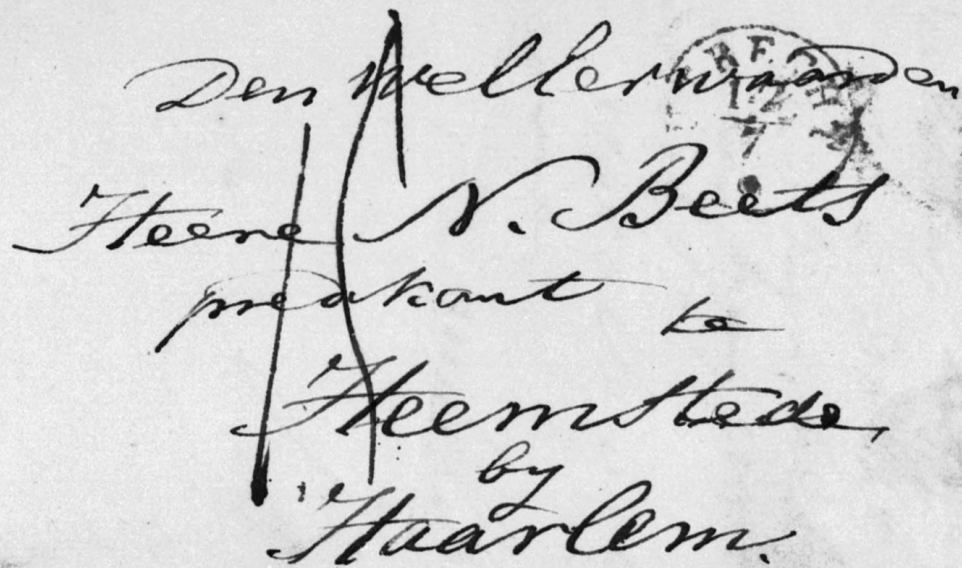 Den Wellerwaarden
Heere N. Beets
predikant te
Heemstede
by
Haarlem.